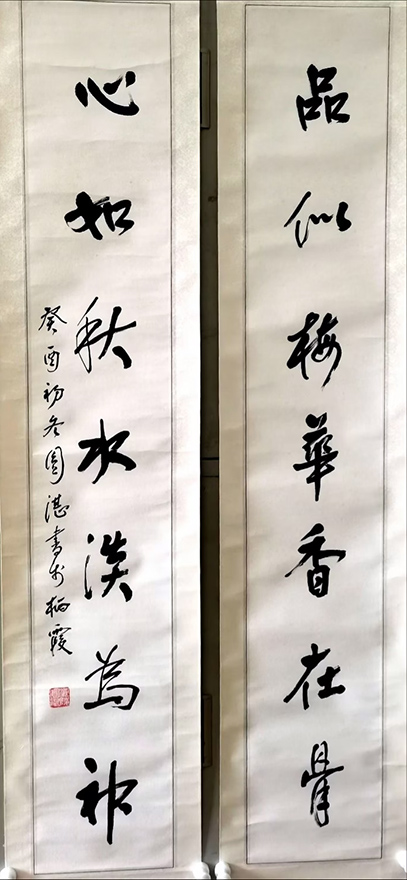 品似梅華香在骨
心如秋水淡為神
癸酉初冬圓湛書於栖霞